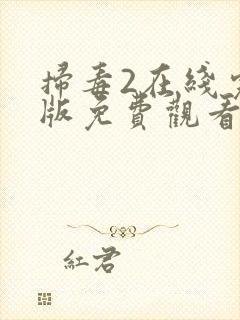 掃毒2在綫
版免費觀看
紅君